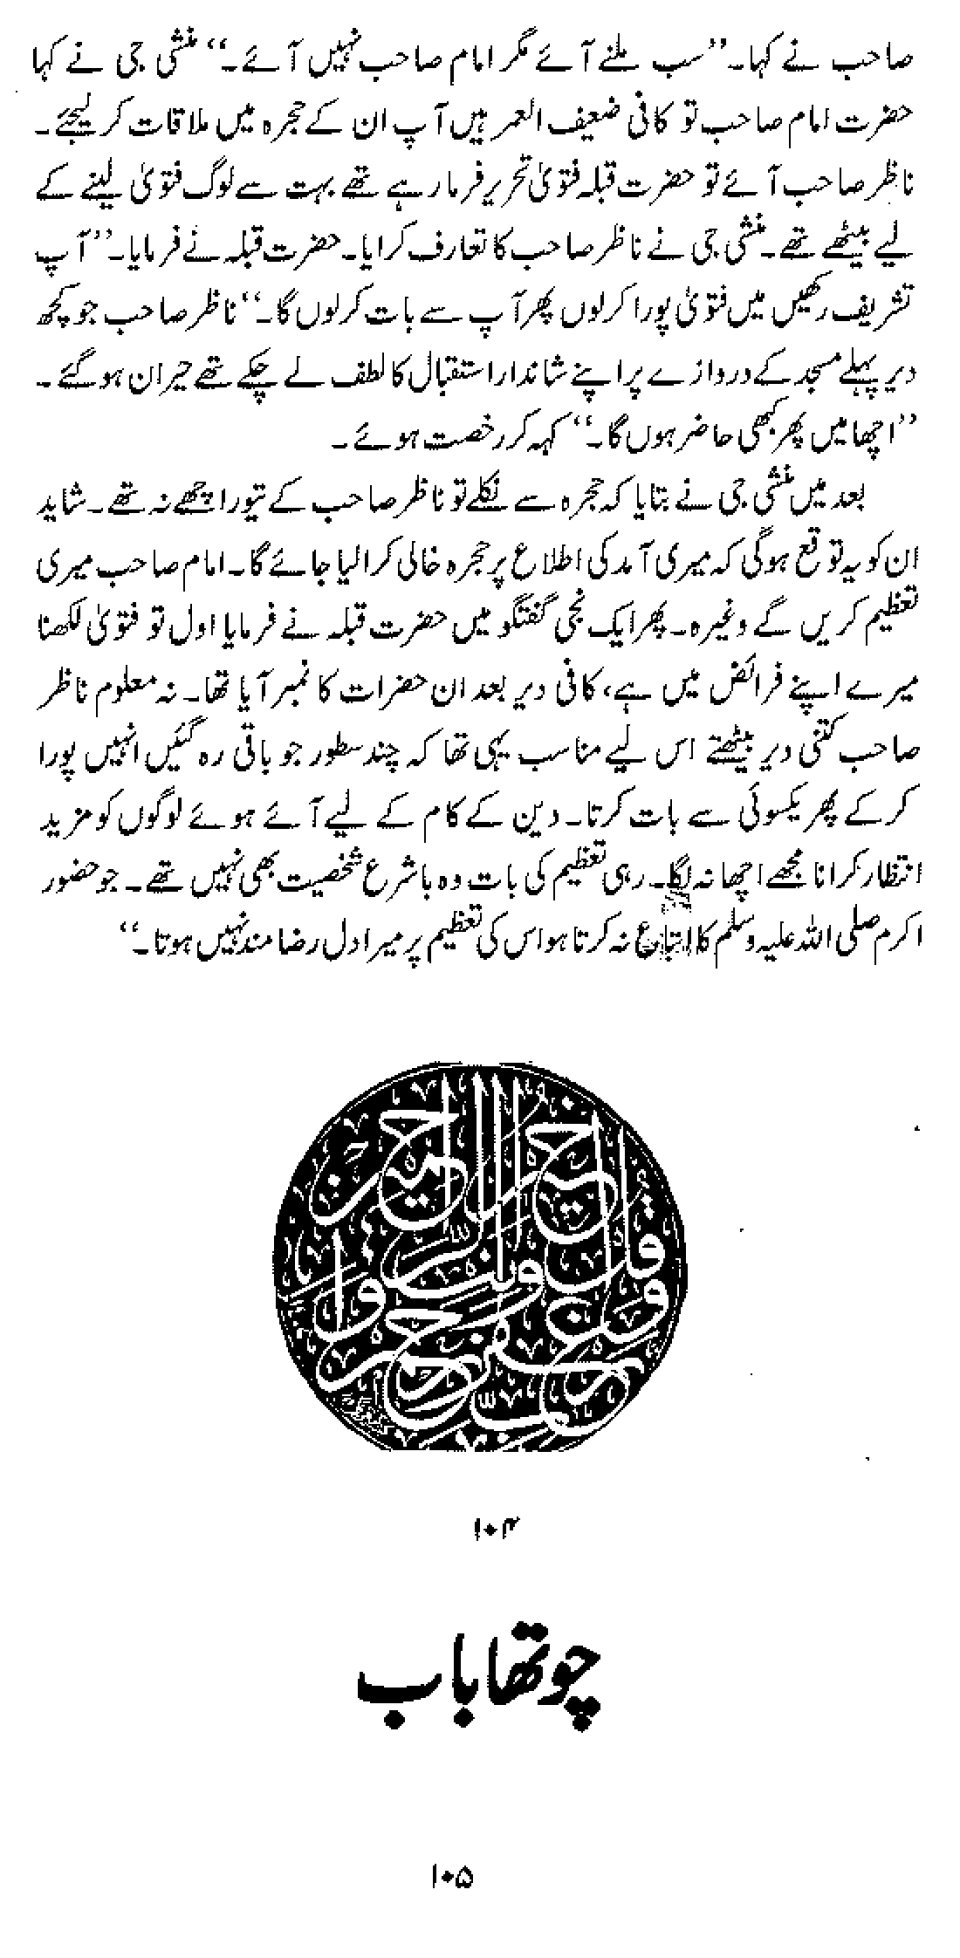 صاحب نے کہا۔ ’’سب ملنے آئے مگر امام صاحب نہیں آئے۔‘‘ منشی جی نے کہا
حضرت امام صاحب تو کافی ضعیف العمر ہیں آپ ان کے حجرہ میں ملاقات کر لیجئے۔
ناظر صاحب آئے تو حضرت قبلہ فتویٰ تحریر فرما رہے تھے بہت سے لوگ فتویٰ لینے کے
لیے بیٹھے تھے۔ منشی جی نے ناظر صاحب کا تعارف کرایا۔ حضرت قبلہ نے فرمایا۔ ’’آپ
تشریف رکھیں میں فتویٰ پورا کرلوں پھر آپ سے بات کرلوں گا۔‘‘ ناظر صاحب جو کچھ
دیر پہلے مسجد کے دروازے پر اپنے شاندار استقبال کا لطف لے چکے تھے حیران ہوگئے۔
’’اچھا میں پھر کبھی حاضر ہوں گا۔‘‘ کہہ کر رخصت ہوئے۔
بعد میں منشی جی نے بتایا کہ حجرہ سے نکلے تو ناظر صاحب کے تیور اچھے نہ تھے۔ شاید
ان کو یہ توقع ہوگی کہ میری آمد کی اطلاع پر حجرہ خالی کرالیا جائے گا۔ امام صاحب میری
تعظیم کریں گے وغیرہ۔ پھر ایک نجی گفتگو میں حضرت قبلہ نے فرمایا اول تو فتویٰ لکھنا
میرے اپنے فرائض میں ہے، کافی دیر بعد ان حضرات کا نمبر آیا تھا۔ نہ معلوم ناظر
صاحب کتنی دیر بیٹھتے اس لیے مناسب یہی تھا کہ چند سطور جو باقی رہ گئیں انہیں پورا
کرکے پھر یکسوئی سے بات کرتا۔ دین کے کام کے لیے آئے ہوئے لوگوں کو مزید
انتظار کرانا مجھے اچھا نہ لگا۔ رہی تعظیم کی بات وہ باشرع شخصیت بھی نہیں تھے۔ جو حضور
اکرم صلی اللہ علیہ وسلم کا اتباع نہ کرتا ہو اس کی تعظیم پر میرا دل رضا مند نہیں ہوتا۔‘‘
۱۰۴
چوتھا باب
۱۰۵